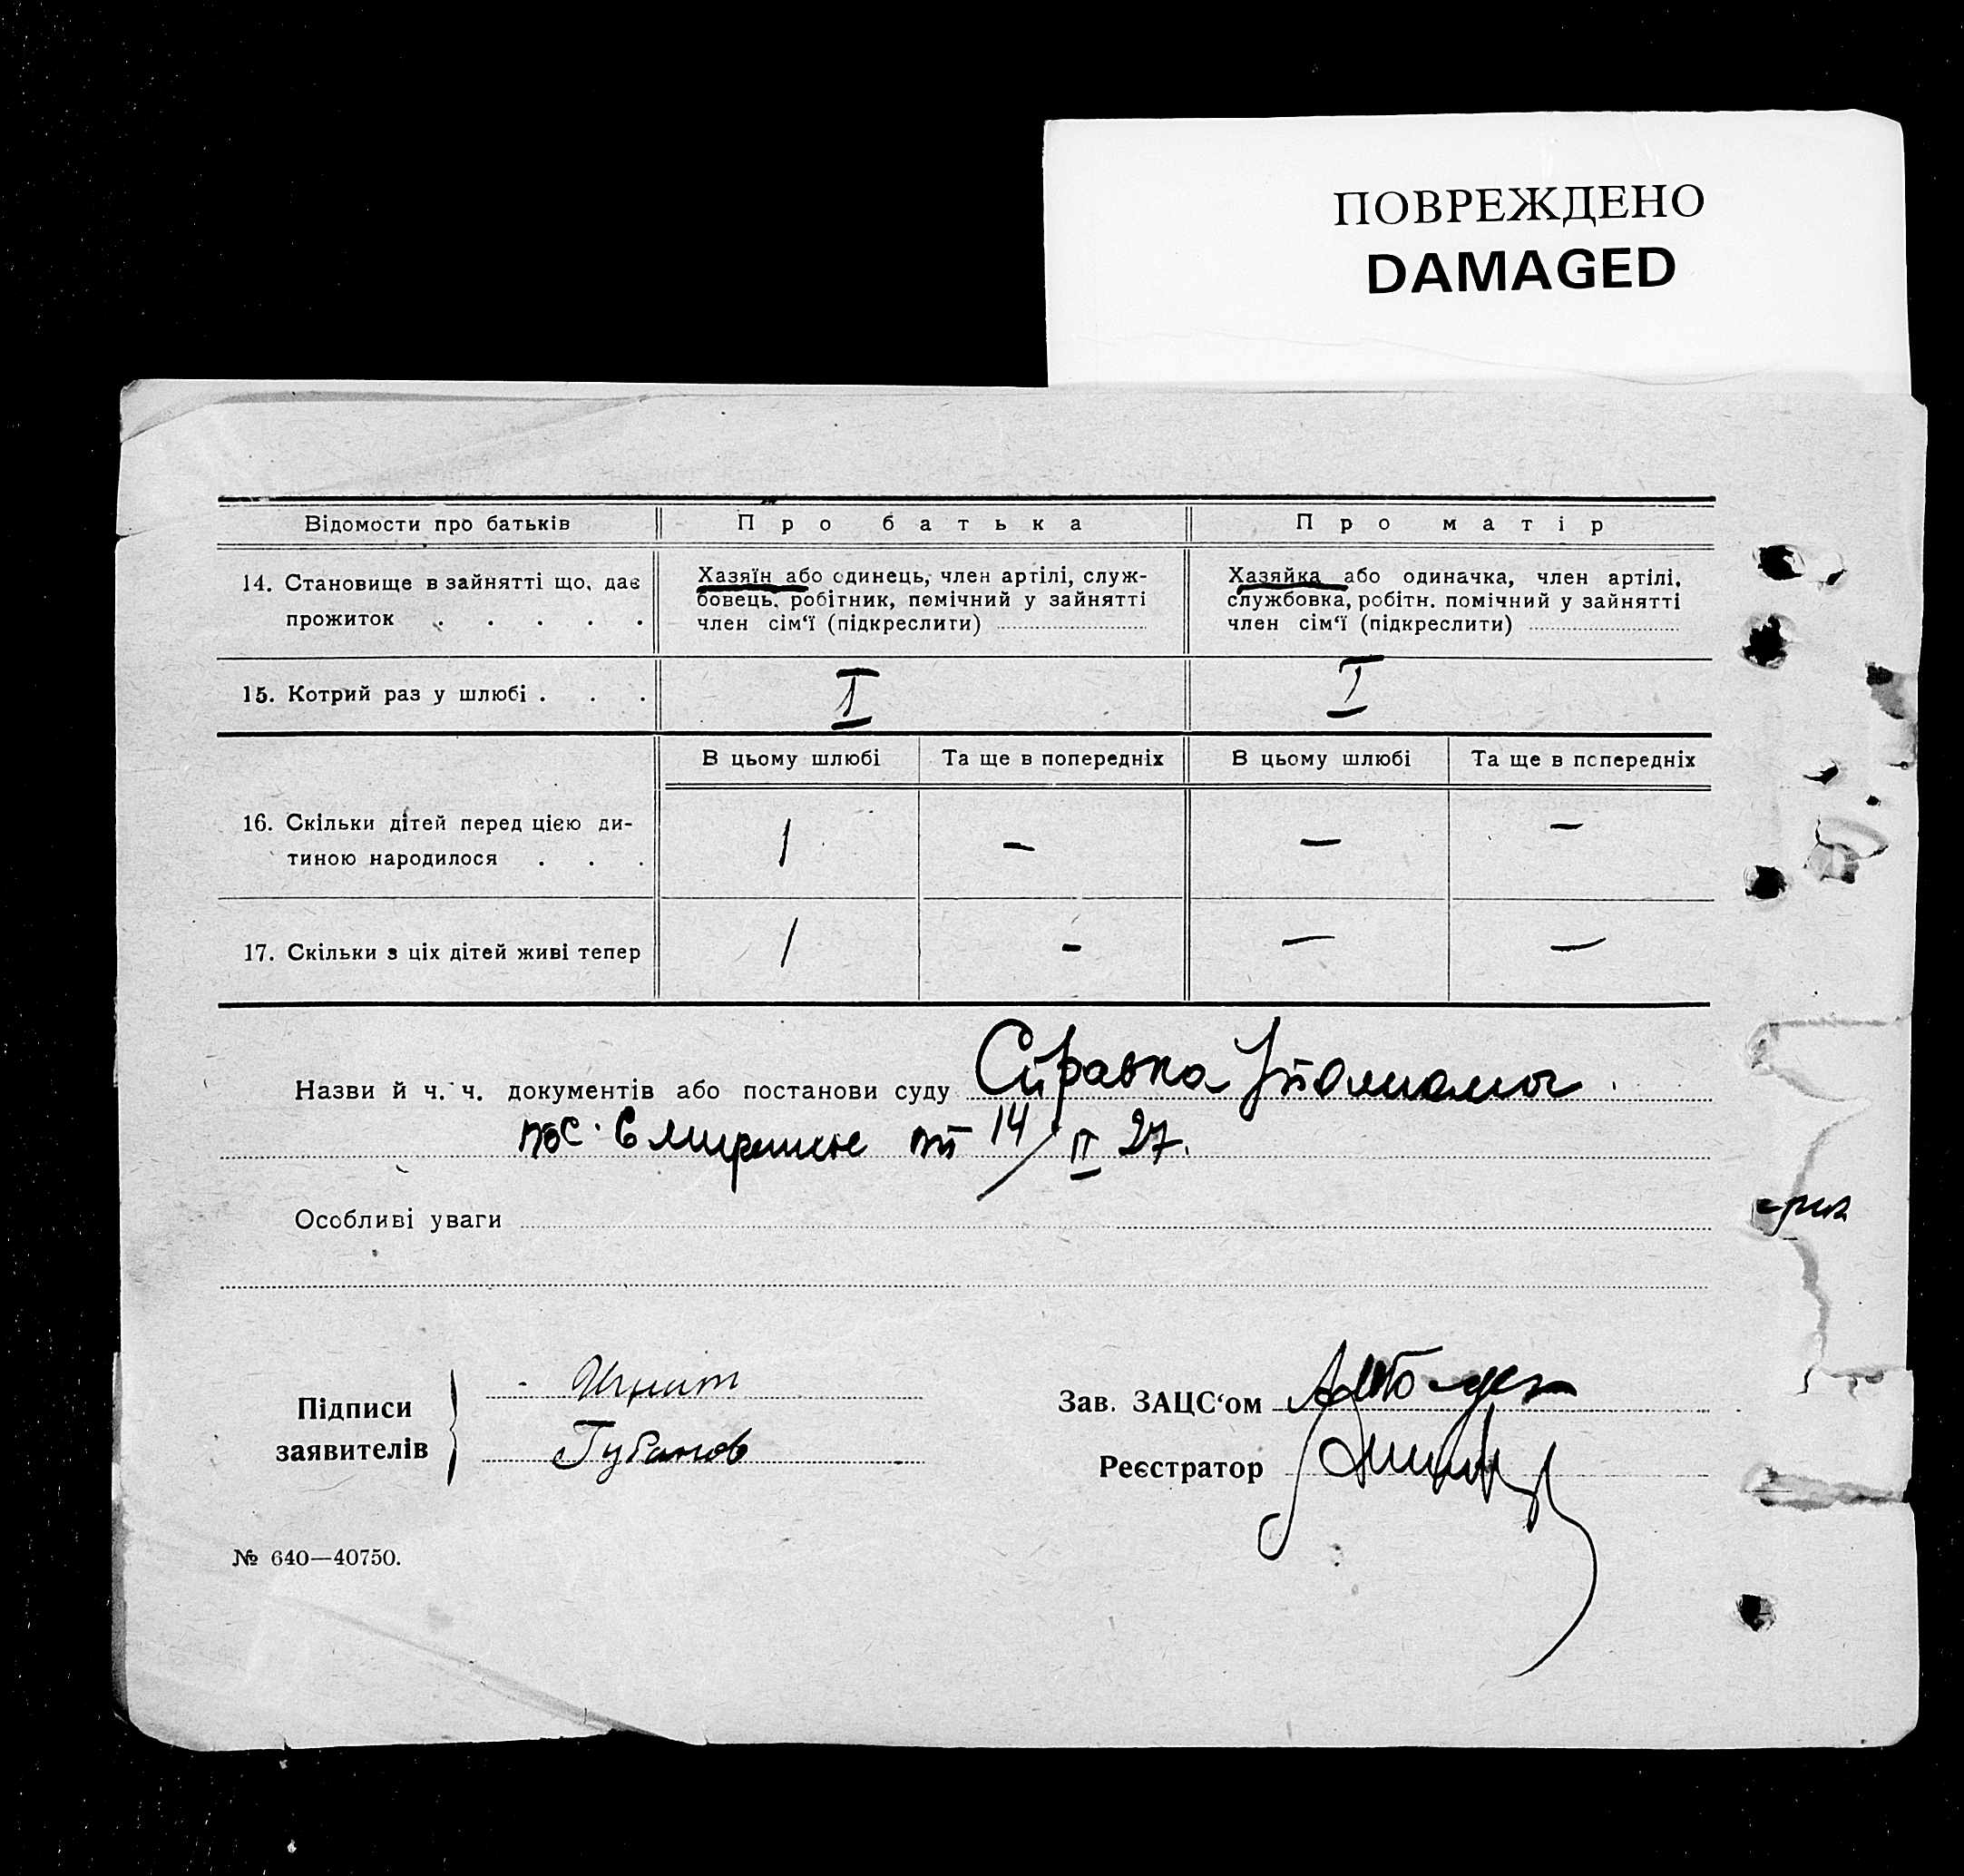 ПОВРЕЖДЕНО
DAMAGED
Відомости про батьків
Про батька
Про матір
14. Становище в зайнятті що, дає
прожиток . . . . .
Хазяїн або одинець, член артілі, служ-
бовець, робітник, помічний у зайнятті
член сім‘ї (підкреслити)
Хазяйка або одиначка, член артілі,
службовка, робітн. помічний у зайнятті
член сім‘ї (підкреслити)
15. Котрий раз у шлюбі . . .
I
I
В цьому шлюбі
Та ще в попередніх
В цьому шлюбі
Та ще в попередніх
16. Скільки дітей перед цією ди-
тиною народилося . . .
1
—
—
—
17. Скільки з ціх дітей живі тепер
1
-
—
—
Назви й ч. ч. документів або постанови суду Справка
14/II 27.
Особливі уваги
Підписи
заявителів
Игнат
Губанов
Зав. ЗАЦС‘ом
Реєстратор
№ 640—40750.